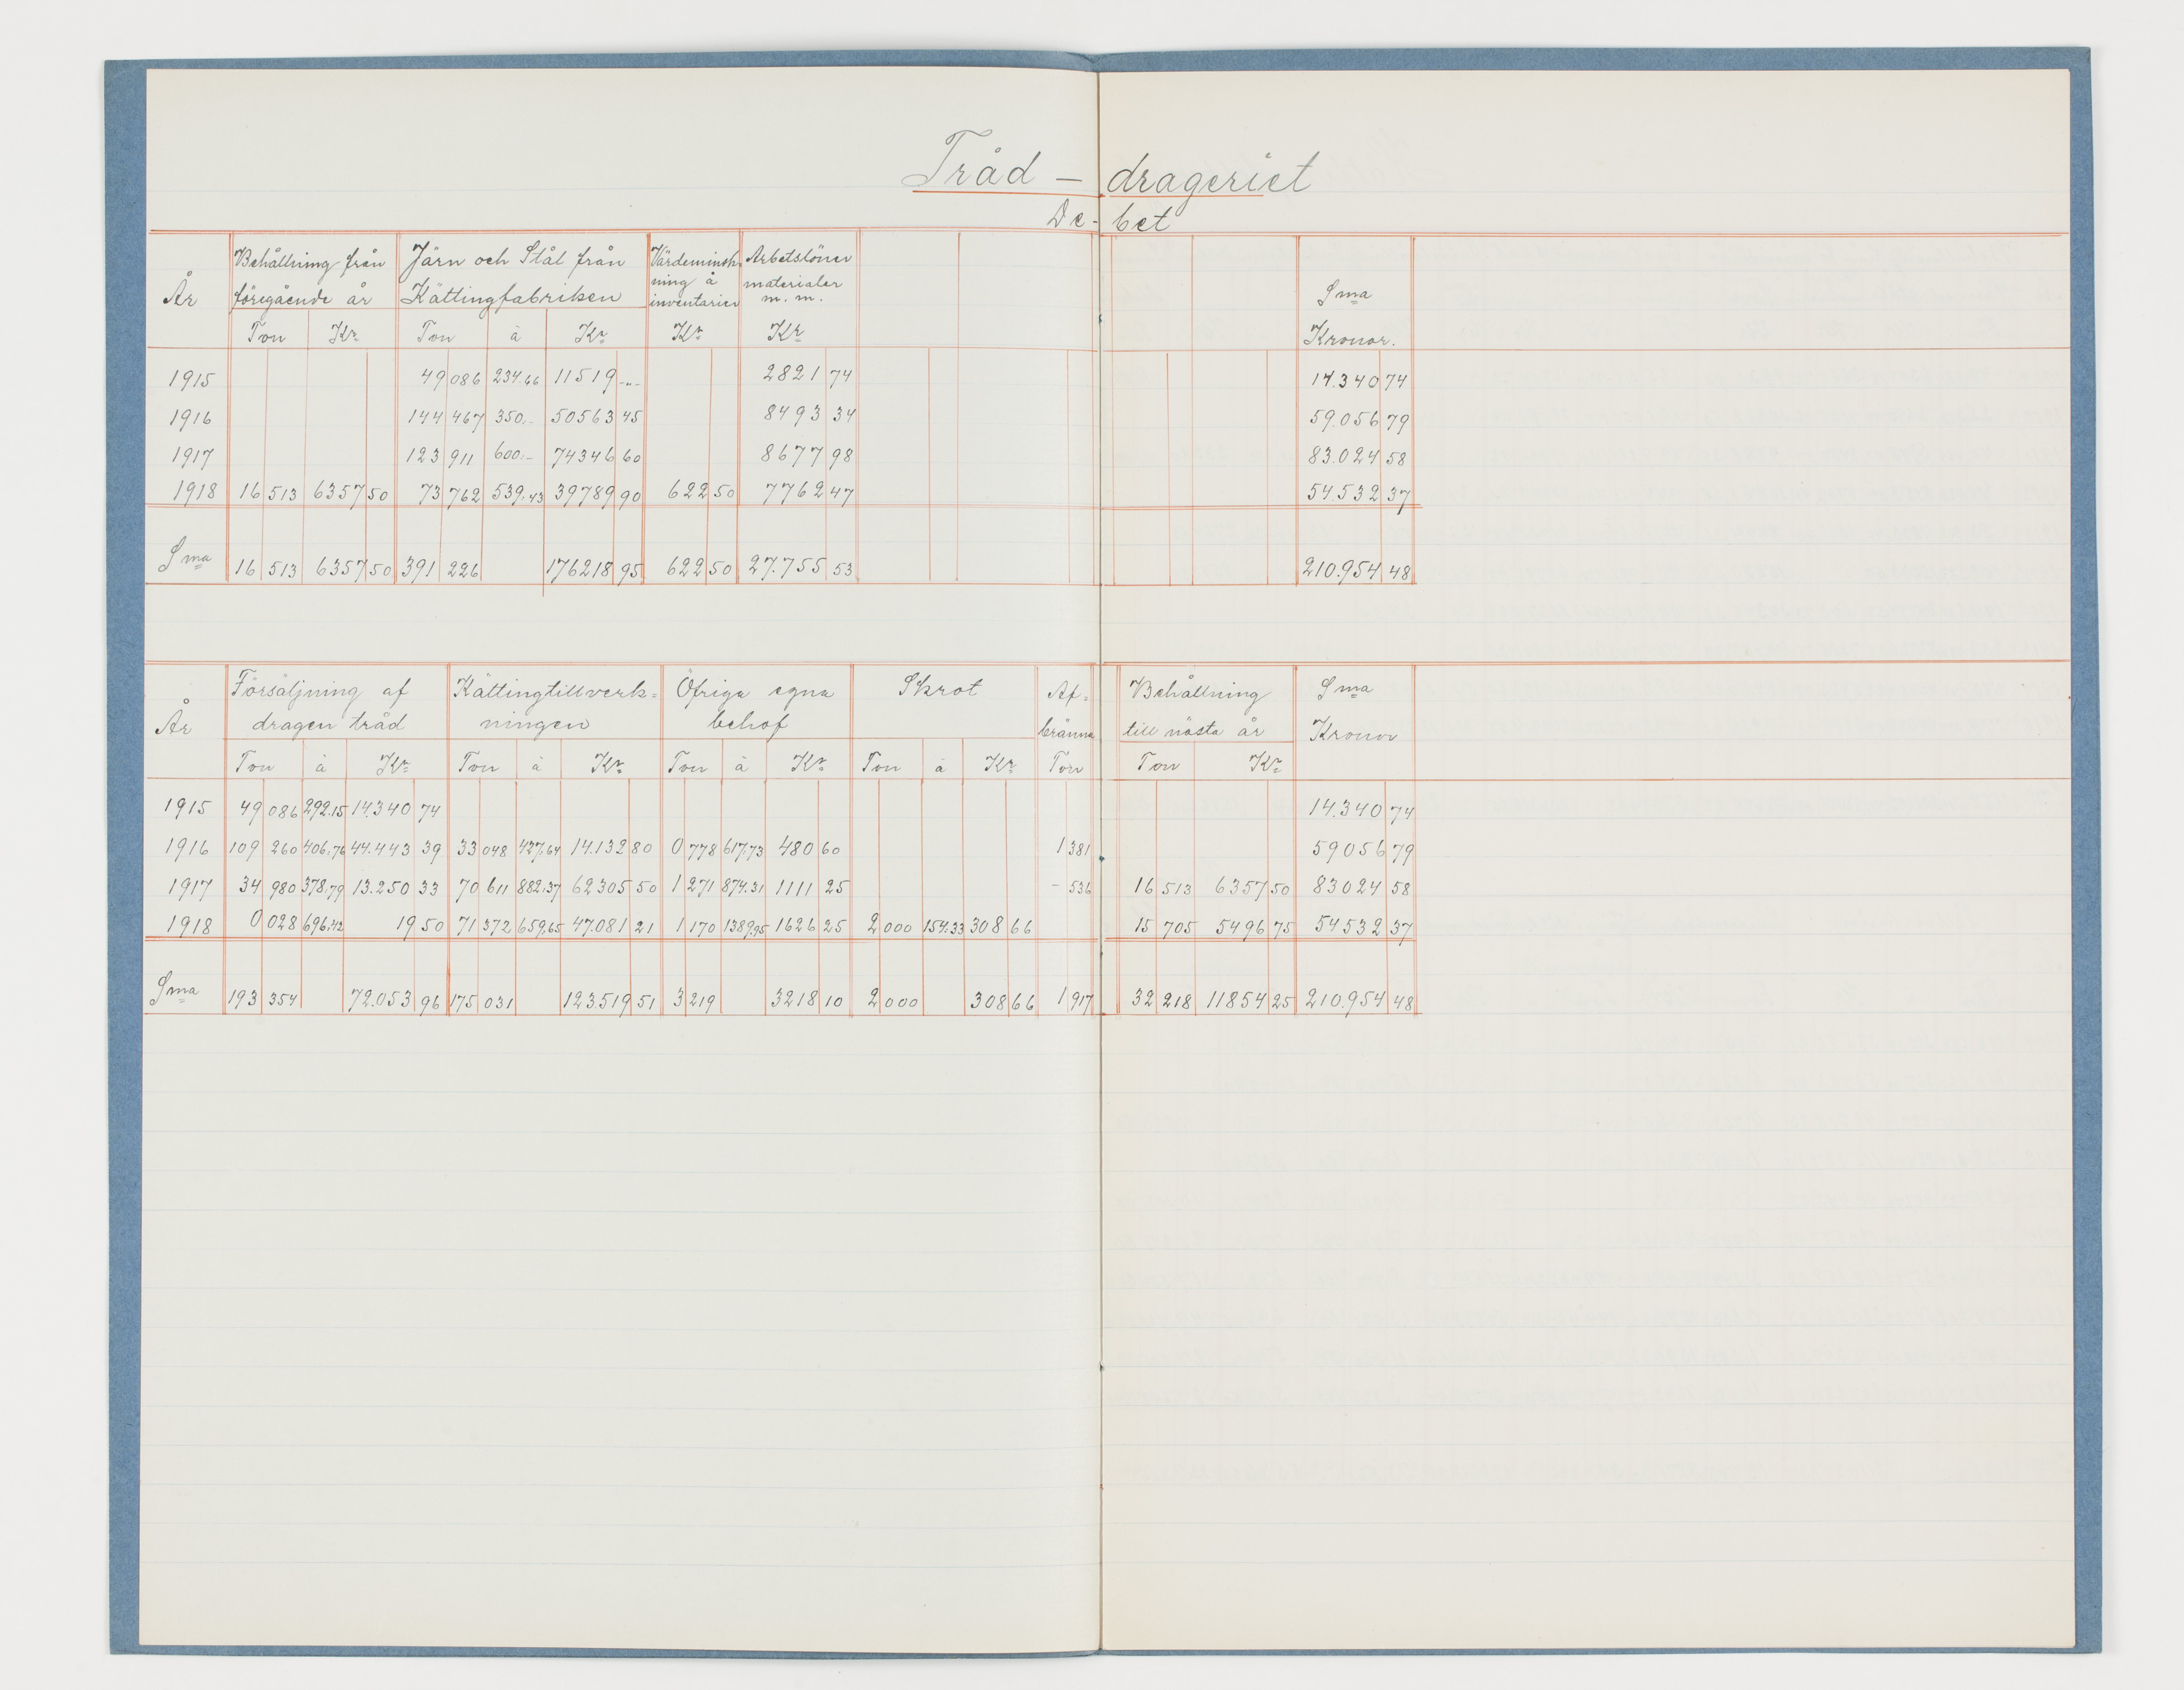 Tråd - drageriet
De- bet
År Behållning från föregående år Järn och Stål från Kättingfabriken Värdeminsk- ning å inventarier Arbetslöner materialer m. m. Sma Kronor.
Ton Kr Ton à Kr Kr Kr
1915 49 086 234.66 11519 -"- 2821 74 14.340 74
1916 144 467 350.- 50563 45 8493 34 59.056 79
1917 123 911 600.- 74346 60 8677 98 83.024 58
1918 16 513 6357 50 73 762 539.43 39789 90 622 50 7762 47 54.532 37
Sma 16 513 6357 50 391 226 176218 95 622 50 27.755 53 210.954 48
År Försäljning af dragen tråd Kättingtillverk- ningen Öfriga egna behof Skrot Af- bränna Behållning till nästa år Sma Kronor
Ton à Kr Ton à Kr Ton à Kr Ton à Kr Ton Ton Kr
1915 49 086 292.15 14.340 74 14.340 74
1916 109 260 406.76 44.443 39 33 048 427.64 14.132 80 0 778 617.73 480 60 1 381 59056 79
1917 34 980 378.79 13.250 33 70 611 882.37 62305 50 1 271 874.31 1111 25 - 536 16 513 6357 50 83024 58
1918 0 028 696.42 19 50 71 372 659.65 47.081 21 1 170 1389.95 1626 25 2 000 154.33 308 66 15 705 5496 75 54532 37
Sma 193 354 72.053 96 175 031 123519 51 3 219 3218 10 2 000 308 66 1 917 32 218 11854 25 210.954 48